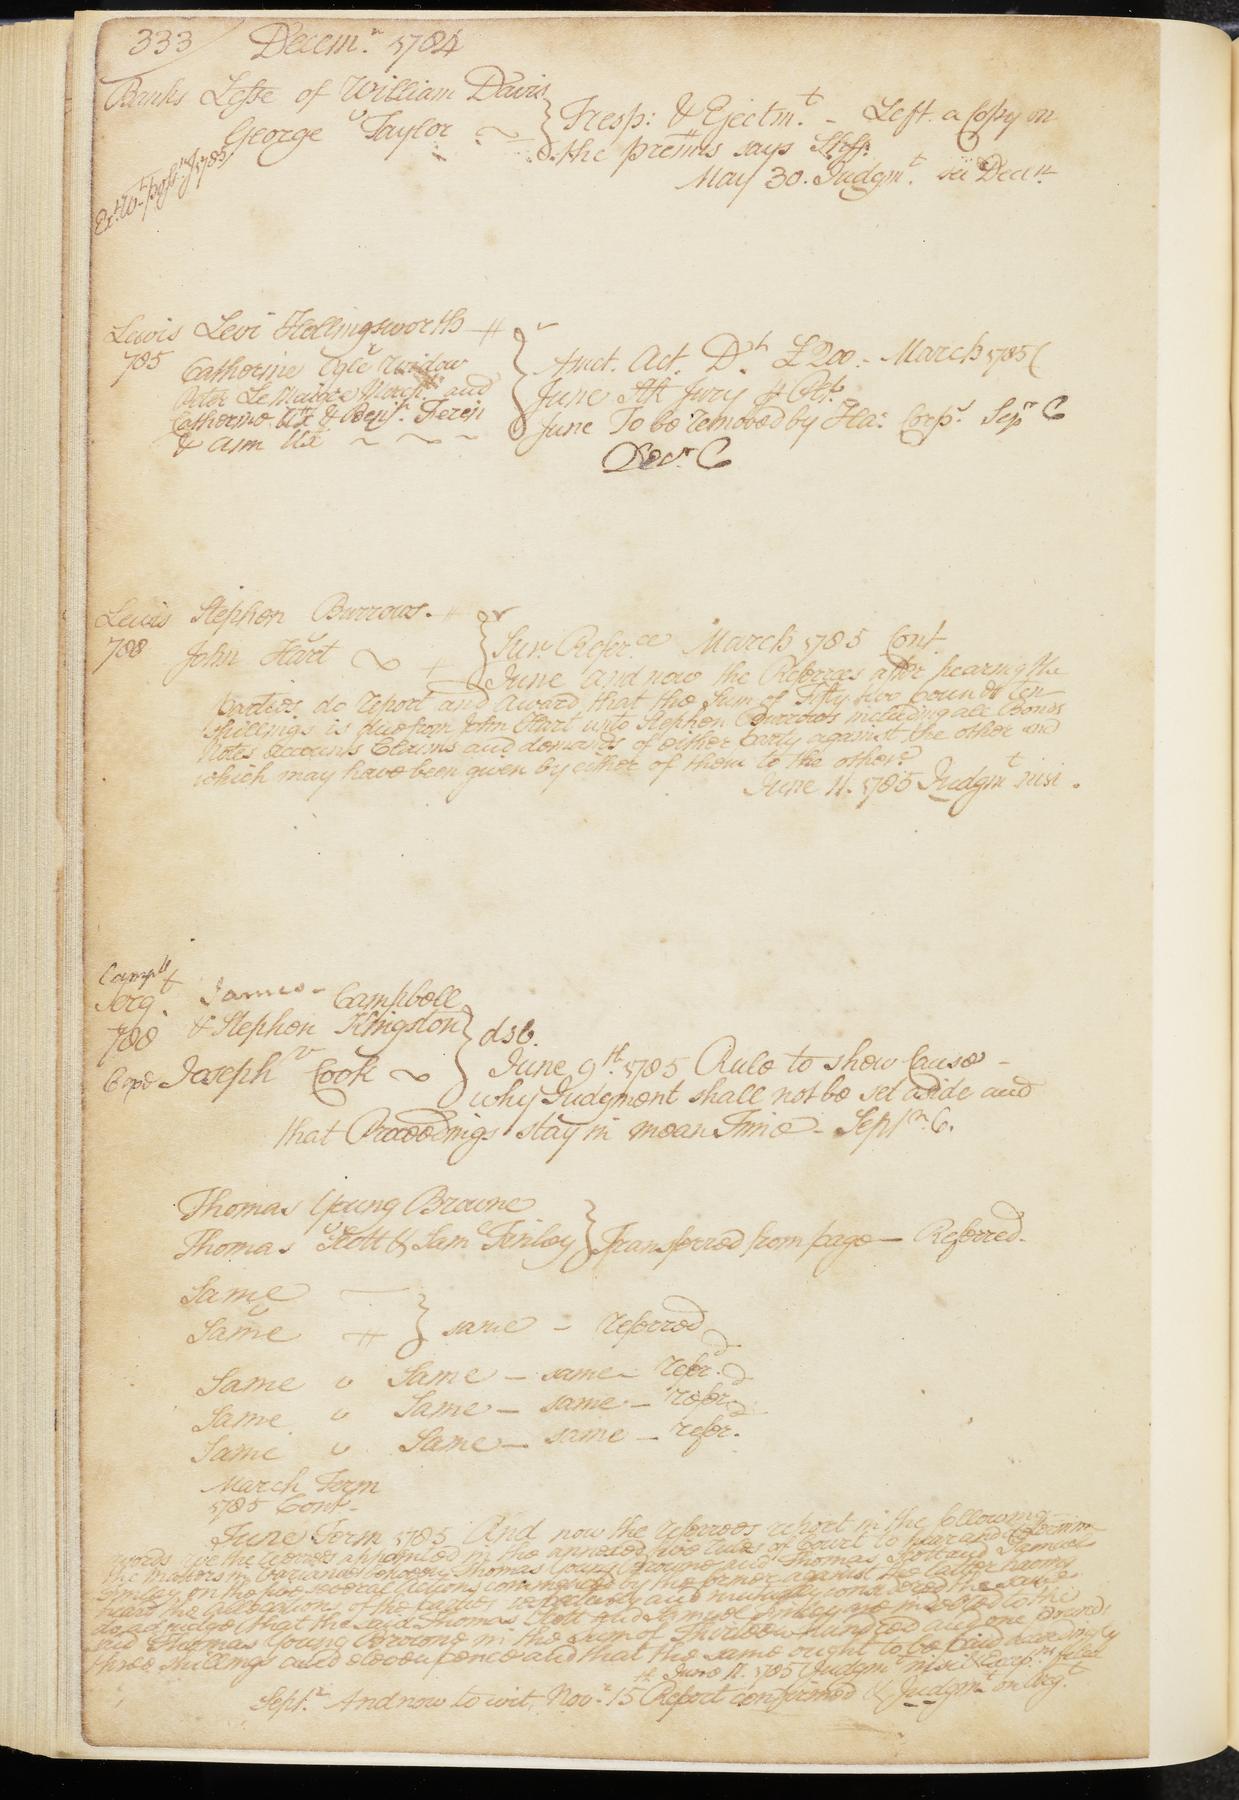 333 Decemr. 1784
Banks Lesse of William Davis
v
George Taylor
Tresp: & Ejectmt. - Left a Copy on
the premis says Shff.
May 30. Judgmt. see Decl
Lewis Levi Hollingsworth
v
785 Catherine Ogle Widow
Peter Le Maigre Mercht. and
Catherine Ux & Benjn. Ferein
& Ann Ux
Amct. Act. Dt. £200. March 1785 C
June Stk Jury
June To be removed by Ha: Corps. Sepr C
Decr. C
Lewis Stephen Burrows.
v
788 John Hart
Sur. Referce March 1785 Cont.
June And now the Referees after hearing the
parties do report and award that the Sum of Fifty two Pounds ten
Shillings is due from John Hart unto Stephen Burrows including all Bonds
Notes accounts Claims and demands of either Party against the other and
which may have been given by either of them to the other
June 11. 1785 Judgmt nisi.
Camplt
Sergt. James Campbell
788 & Stephen Kingston
v
Joseph Cook
dsb.
June 9th. 1785 Rule to show Cause
why Judgment shall not be set aside and
that Proceedings stay in mean Time - Septr. C.
Thomas Young Browne
v
Thomas Scott & Saml Finley
Transferred from page - Referred.
Same
v
Same
same - Referred
Same v Same - same - refr.
Same v Same - same - refer.
Same v Same - same - refer.
March Term
1785 Cont.
June Term 1785 And now the referees report in the following
words We the referees appointed in the annexed five rules of Court to hear and determine
the matters in Variance between Thomas Young Browne and Thomas Scott and Samuel
Finley on the five several Actions commenced by the former against the latter having
heard the allegations of the parties and mutually considered the same
do adjudge that the said Thomas Scott and Samuel Finley are indebted to the
said Thomas Young Browne in the sum of Thirteen Hundred and one Pounds
three shillings and eleven pence and that the same ought to be paid accordingly
June 11. 1785 Judgmt nisi & Excepn filed
Septr. And now to wit Novr. 15 Report confirmed & Judgmt on Arg.